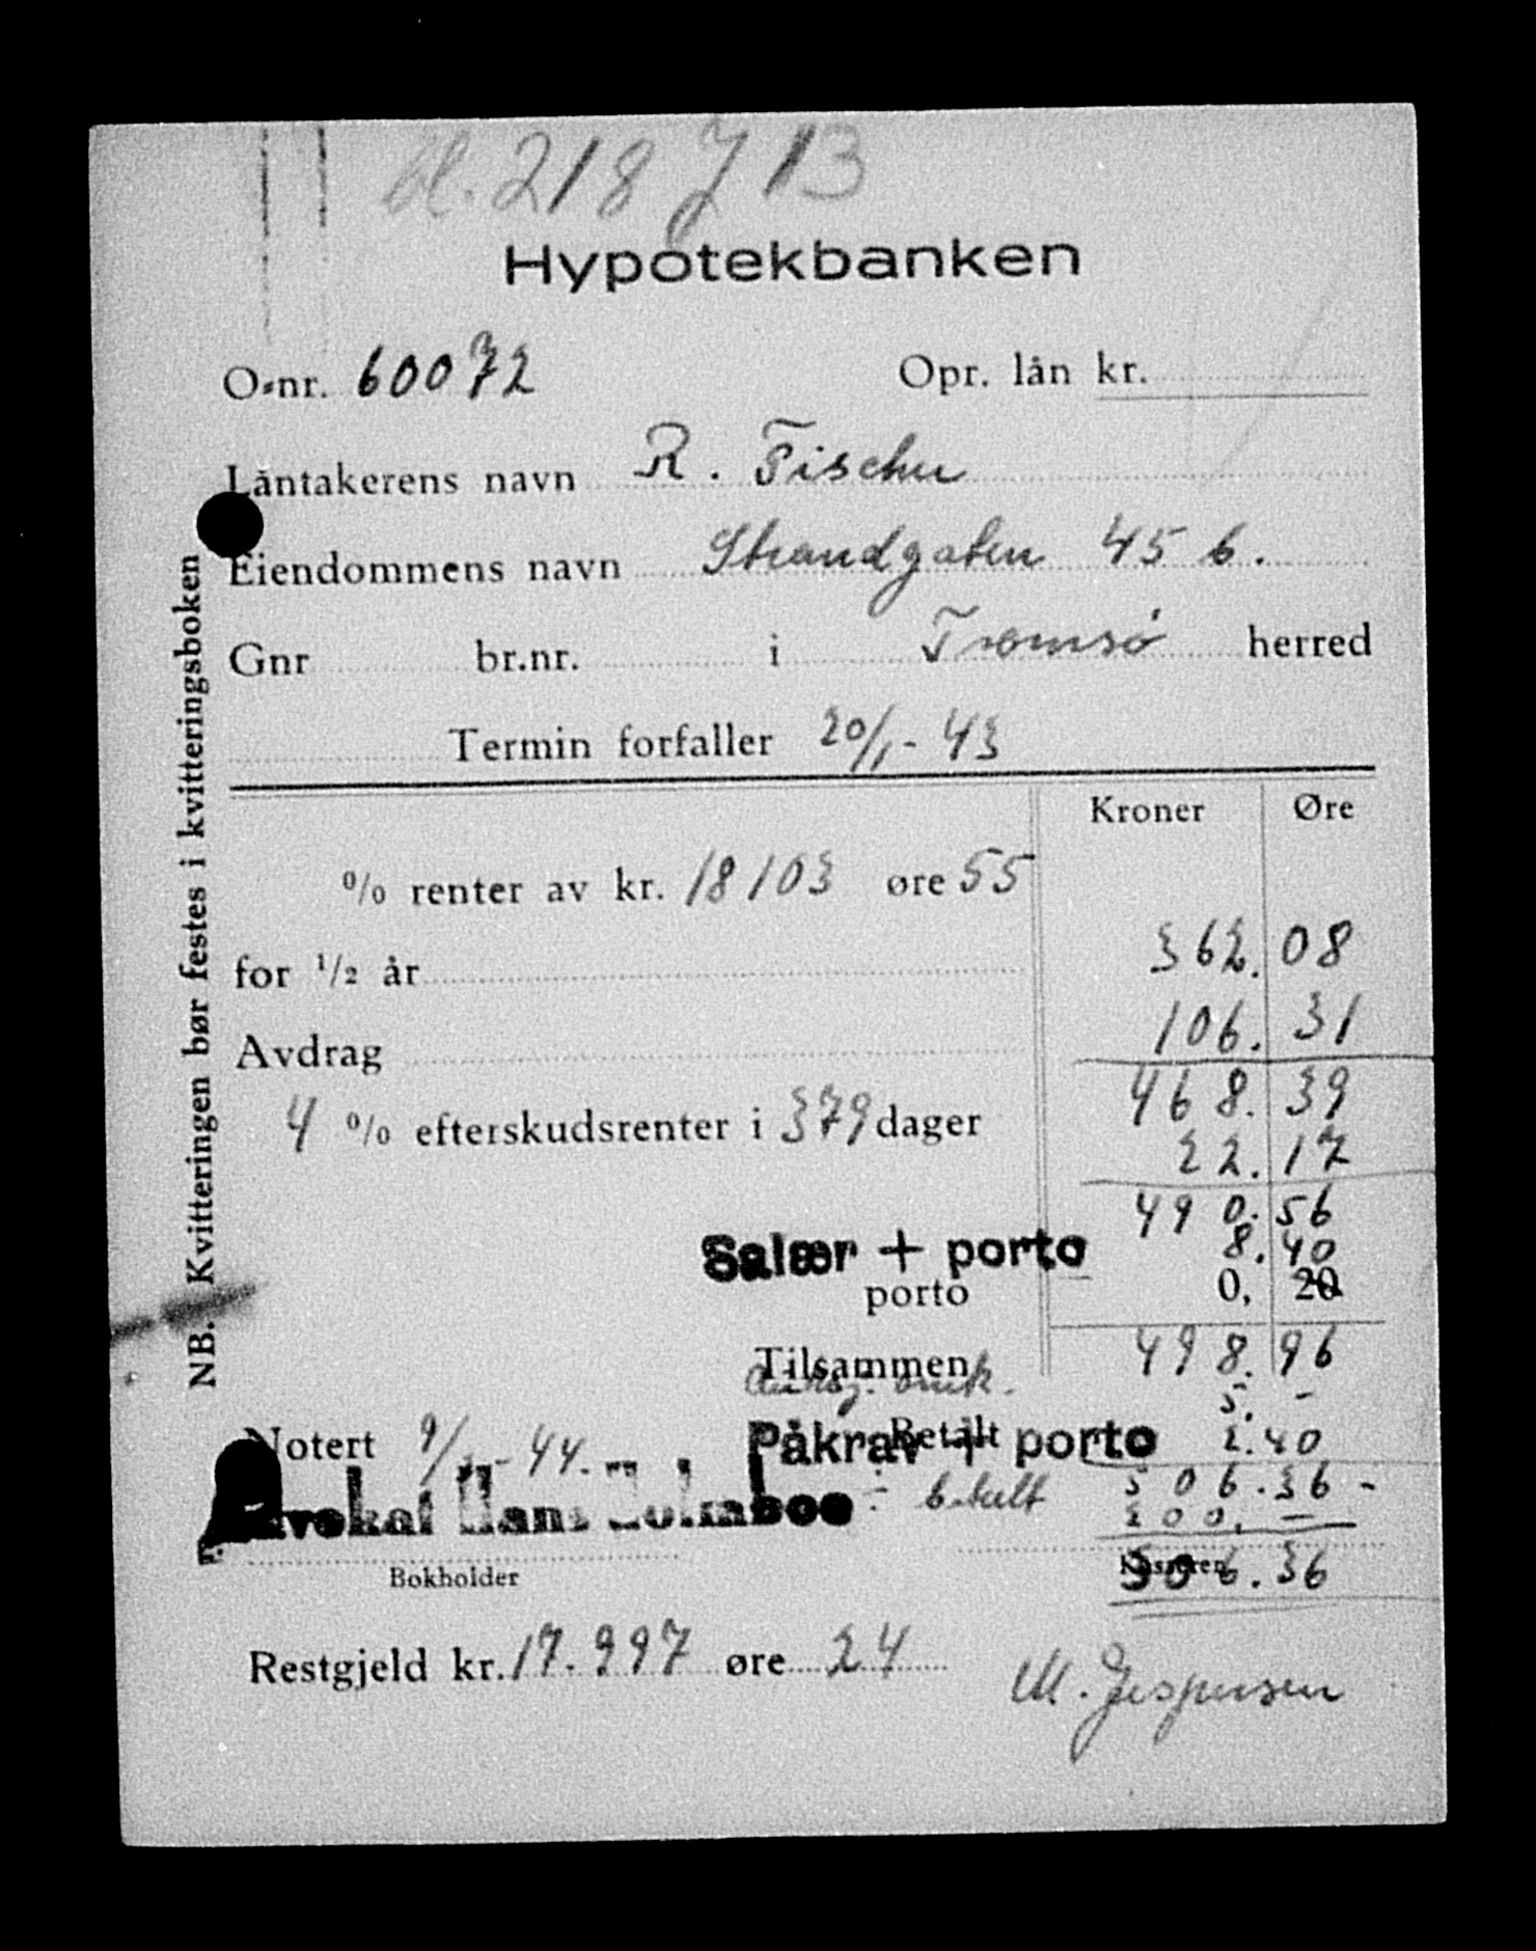 bl. 218 J 13
Hypotekbanken
O-nr. 60072 Opr. lån kr.
Låntakerens navn R. Fischer
Eiendommens navn Strandgaten 45 b.
Gnr br.nr. i Tromsø herred
Termin forfaller 20/1-43
Kroner Øre
% renter av kr. 18103 øre 55
for 1/2 år 362. 08
Avdrag 106. 31
468. 39
4 % efterskudsrenter i 379 dager 22. 17
490. 56
Salær + porto 8. 40
porto 0, 20
Tilsammen 498. 96
5. -
Betalt
Påkrav + porto 2.40
Notert 9/2-44.
506.36 -
Advokat Hans Holmboe ÷ betalt 200. -
Bokholder Kassereren
306.36
Restgjeld kr. 17.997 øre 24
M. Jespersen
NB. Kvitteringen bør festes i kvitteringsboken